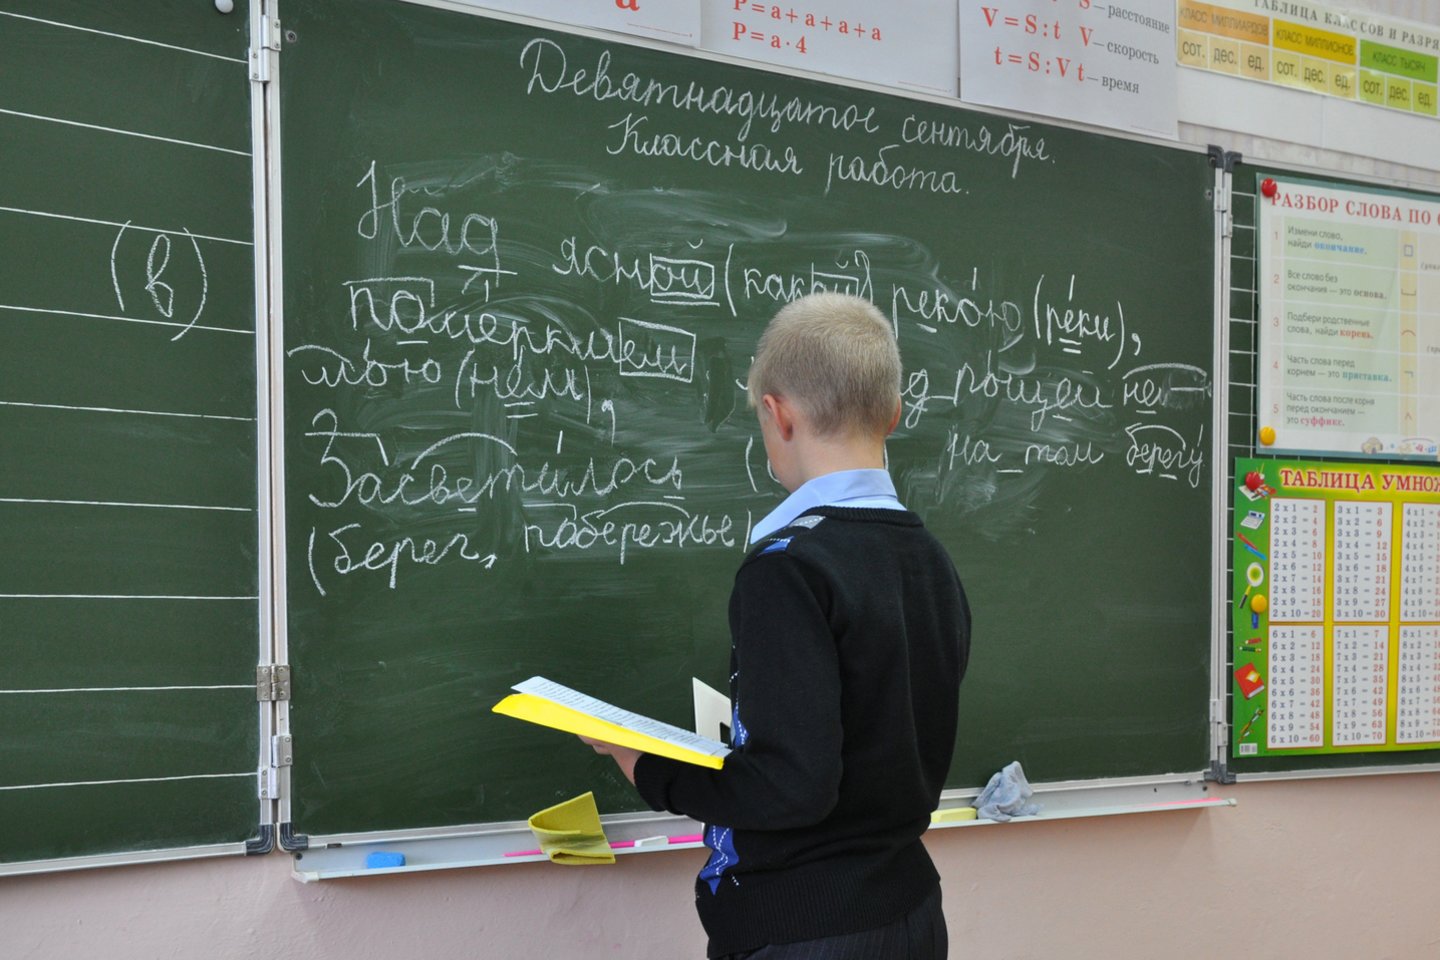 а
P = a + a + a + a
P = a · 4
S — расстояние
V = S : t V — скорость
t = S : V t — время
ТАБЛИЦА КЛАССОВ И РАЗРЯ
КЛАСС МИЛЛИАРДОВ КЛАСС МИЛЛИОНОВ КЛАСС ТЫСЯЧ
сот. дес. ед. сот. дес. ед. сот. дес. ед.
Девятнадцатое сентября.
Классная работа.
(в)
Над ясной (какой) рекою (реки),
померкшем
тью (нем),
д рощей
Засветилось
на том берегу
(берег, побережье)
РАЗБОР СЛОВА ПО
1 Измени слово,
найди окончание.
2 Все слово без
окончания — это основа.
3 Подбери родственные
слова, найди корень.
4 Часть слова перед
корнем — это приставка.
5 Часть слова после корня
перед окончанием —
это суффикс.
ТАБЛИЦА УМНОЖ
2 x 1 = 2 3 x 1 = 3 4 x 1 =
2 x 2 = 4 3 x 2 = 6 4 x 2 =
2 x 3 = 6 3 x 3 = 9 4 x 3 =
2 x 4 = 8 3 x 4 = 12 4 x 4 =
2 x 5 = 10 3 x 5 = 15 4 x 5 =
2 x 6 = 12 3 x 6 = 18 4 x 6 =
2 x 7 = 14 3 x 7 = 21 4 x 7 =
2 x 8 = 16 3 x 8 = 24 4 x 8 =
2 x 9 = 18 3 x 9 = 27 4 x 9 =
2 x 10 = 20 3 x 10 = 30 4 x 10
6 x 1 = 6 7 x 1 = 7 8 x 1 =
6 x 2 = 12 7 x 2 = 14 8 x 2 =
6 x 3 = 18 7 x 3 = 21 8 x 3 =
6 x 4 = 24 7 x 4 = 28 8 x 4 =
6 x 5 = 30 7 x 5 = 35 8 x 5 =
6 x 6 = 36 7 x 6 = 42 8 x 6 =
6 x 7 = 42 7 x 7 = 49 8 x 7 =
6 x 8 = 48 7 x 8 = 56 8 x 8 =
6 x 9 = 54 7 x 9 = 63 8 x 9 =
6 x 10 = 60 7 x 10 = 70 8 x 10